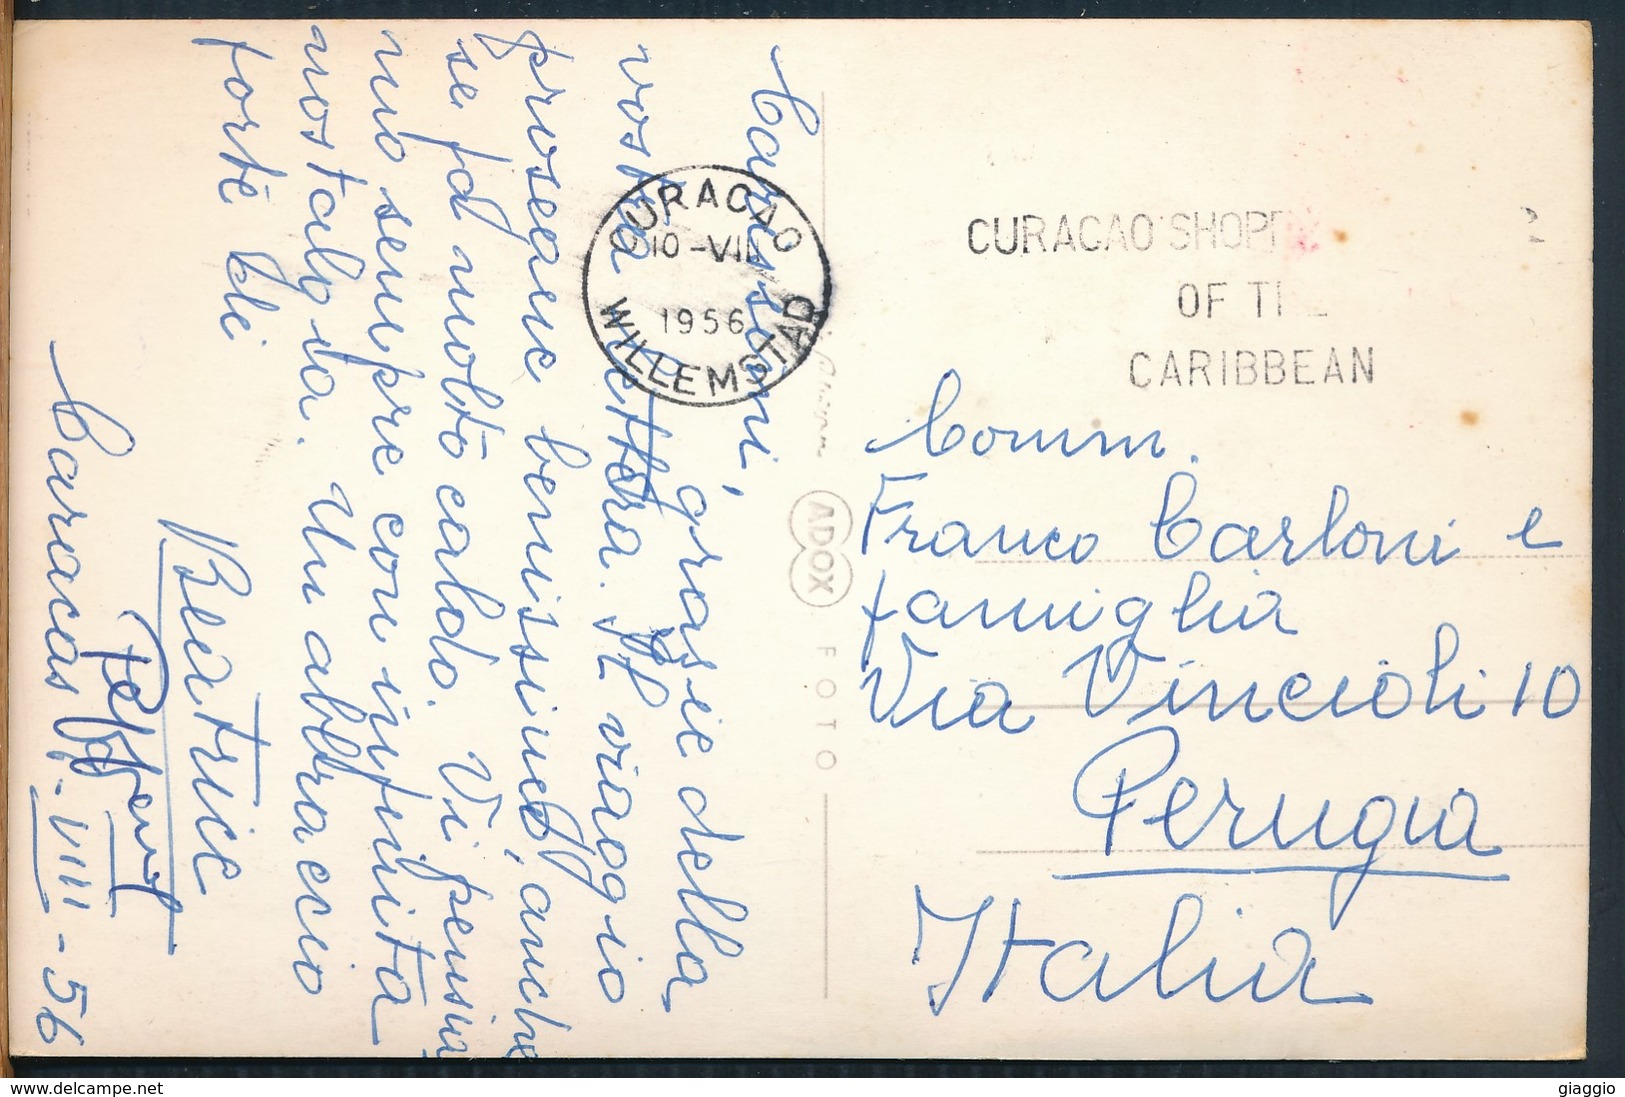 Carissimi,
grazie della
vostra lettera. Il viaggio
prosegue benissimo, anche
se fa molto caldo. Vi pensia
mo sempre con infinita
nostalgia. Un abbraccio
forte di
Beatrice
Caracas VIII-56
CURACAO
10-VIII
1956
WILLEMSTAD
CURACAO SHOPP
OF THE
CARIBBEAN
ADOX FOTO
Comm.
Franco Carloni e
famiglia
Via Vincioli 10
Perugia
Italia
delcampe.net
giaggio